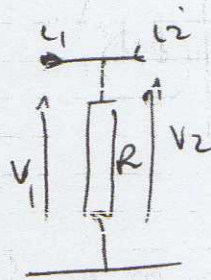 i₁ i₂
V₁ R V₂